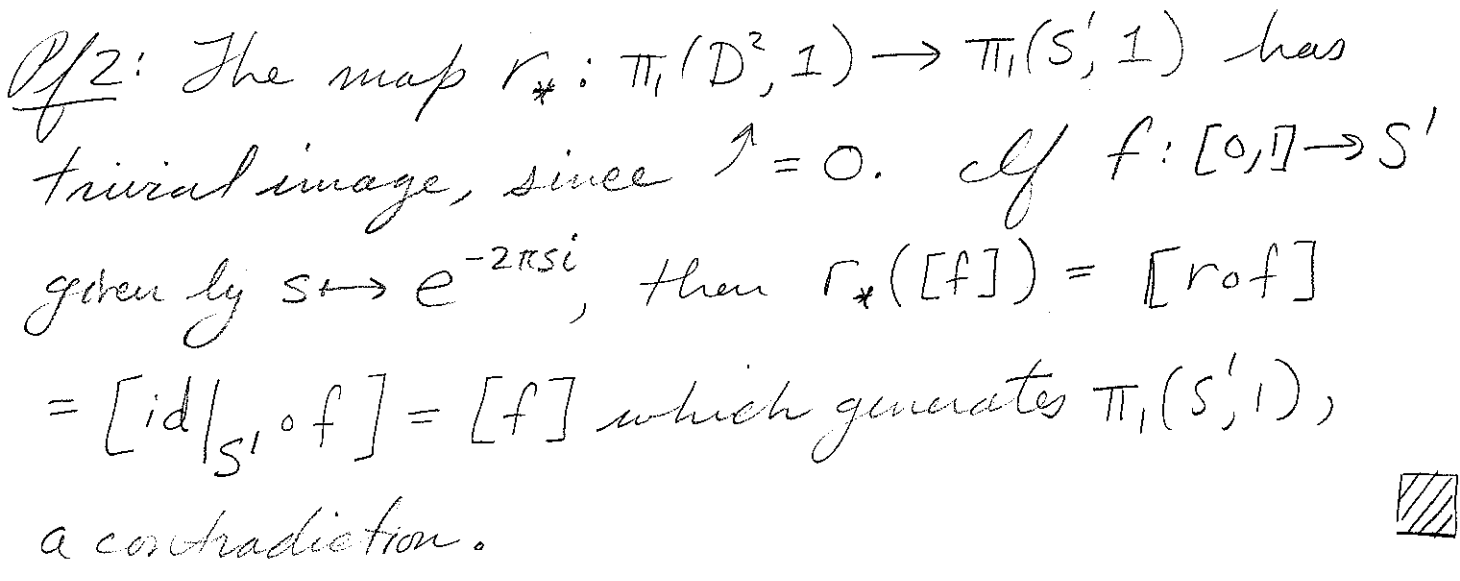 Pf 2: The map r_* : π₁(D², 1) → π₁(S¹, 1) has
trivial image, since ↑ = 0. If f : [0,1] → S¹
given by s ↦ e^{-2πsi}, then r_*([f]) = [r∘f]
= [id|_{S¹} ∘ f] = [f] which generates π₁(S¹, 1),
a contradiction.